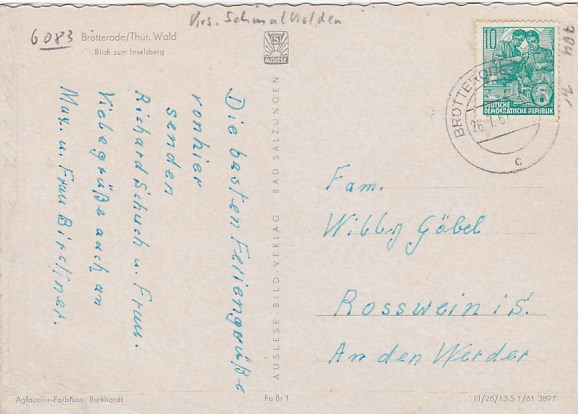 Krs. Schmalkalden
6083
Brotterode/Thür. Wald
Blick zum Inselsberg
AUSLESE
10
DEUTSCHE
DEMOKRATISCHE REPUBLIK
BROTTERODE
26.
c
704
Die basten Feriengrüße
vonhier
senden
Richard Schuch u. Frau.
Viehegrüße auch an
Max. u. Frau
AUSLESE-BILD-VERLAG BAD SALZUNGEN
Fam.
Willy Göbel
Rosswein i/S.
An den Werder
Agfacolor-Farbfoto: Burkhardt
Fo Br 1
III/26/13 S 1/61 3897